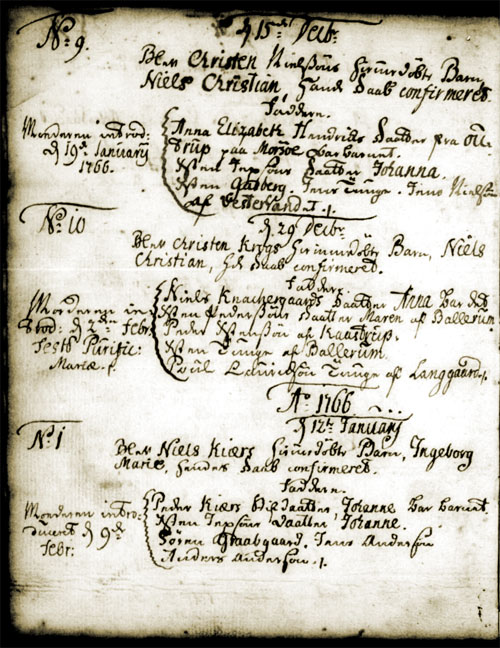 No: 9.
d 15de Decbr.
Blev Christen Nielsøns hiemdøbte Barn,
Niels Christian, hands Daab confirmeret.
Faddern.
Moderen introd:
d 19de January
1766.
Anna Elizabeth Hendrichs Daatter fra
paa Morsøe bar barnet.
Jepsøns Daatter Johanna.
Gudberg. Jens Tunge. Jens Nielsøn
af Vesterland
No: 10
d 29 Decbr.
Blev Christen Krogs hiemdøbte Barn, Niels
Christian, hs Daab confirmeret.
Faddere.
Moderen in
trod: d 2den Febr:
Festo Purific:
Mariæ.
Niels Knachergaards Daatter Anna bar det
Pedersøns Daatter Maren af Ballerum
Peder af Kaastrup.
Tunge af Ballerum
Poul Lauridsøn Tunge af Langgaard.
Ao 1766
d 12te January
No: 1
Blev Niels Kiærs hiemdøbte Barn, Ingeborg
Marie, hendes Daab confirmeret.
Faddern.
Moderen intro:
duceret d 9de
Febr:
Peder Kiærs Johanne bar barnet
Jepsøns Daatter, Johanne.
Søren Graabgaard. Jens Andersøn
Anders Andersøn.